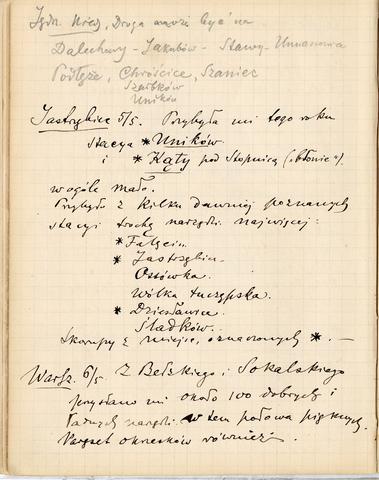 Droga może być na
Dalechowy - Jakubów - Stawy -
Podłęże, Chrościce, Szaniec
Szczbków
Uników
Jastrzębice 5/5. Przybyła mi tego roku
stacya *Uników
i *Kąty pod Stopnicą ("błonie")
wogóle mało.
Przybyło z kilku dawniej poznanych
stacyi trochę narzędzi. najwięcej:
*Falęcin.
* Jastrzębice.
Ostówka.
Wólka tuczępska.
* Dziesławice
Śladków.
Skorupy z miejsc, oznaczonych *. —
Warsz. 6/5 Z Bełskiego i Sokalskiego
przysłano mi około 100 dobrych i
ładnych narzędzi. w tem połowa pięknych.
okrzesków również.